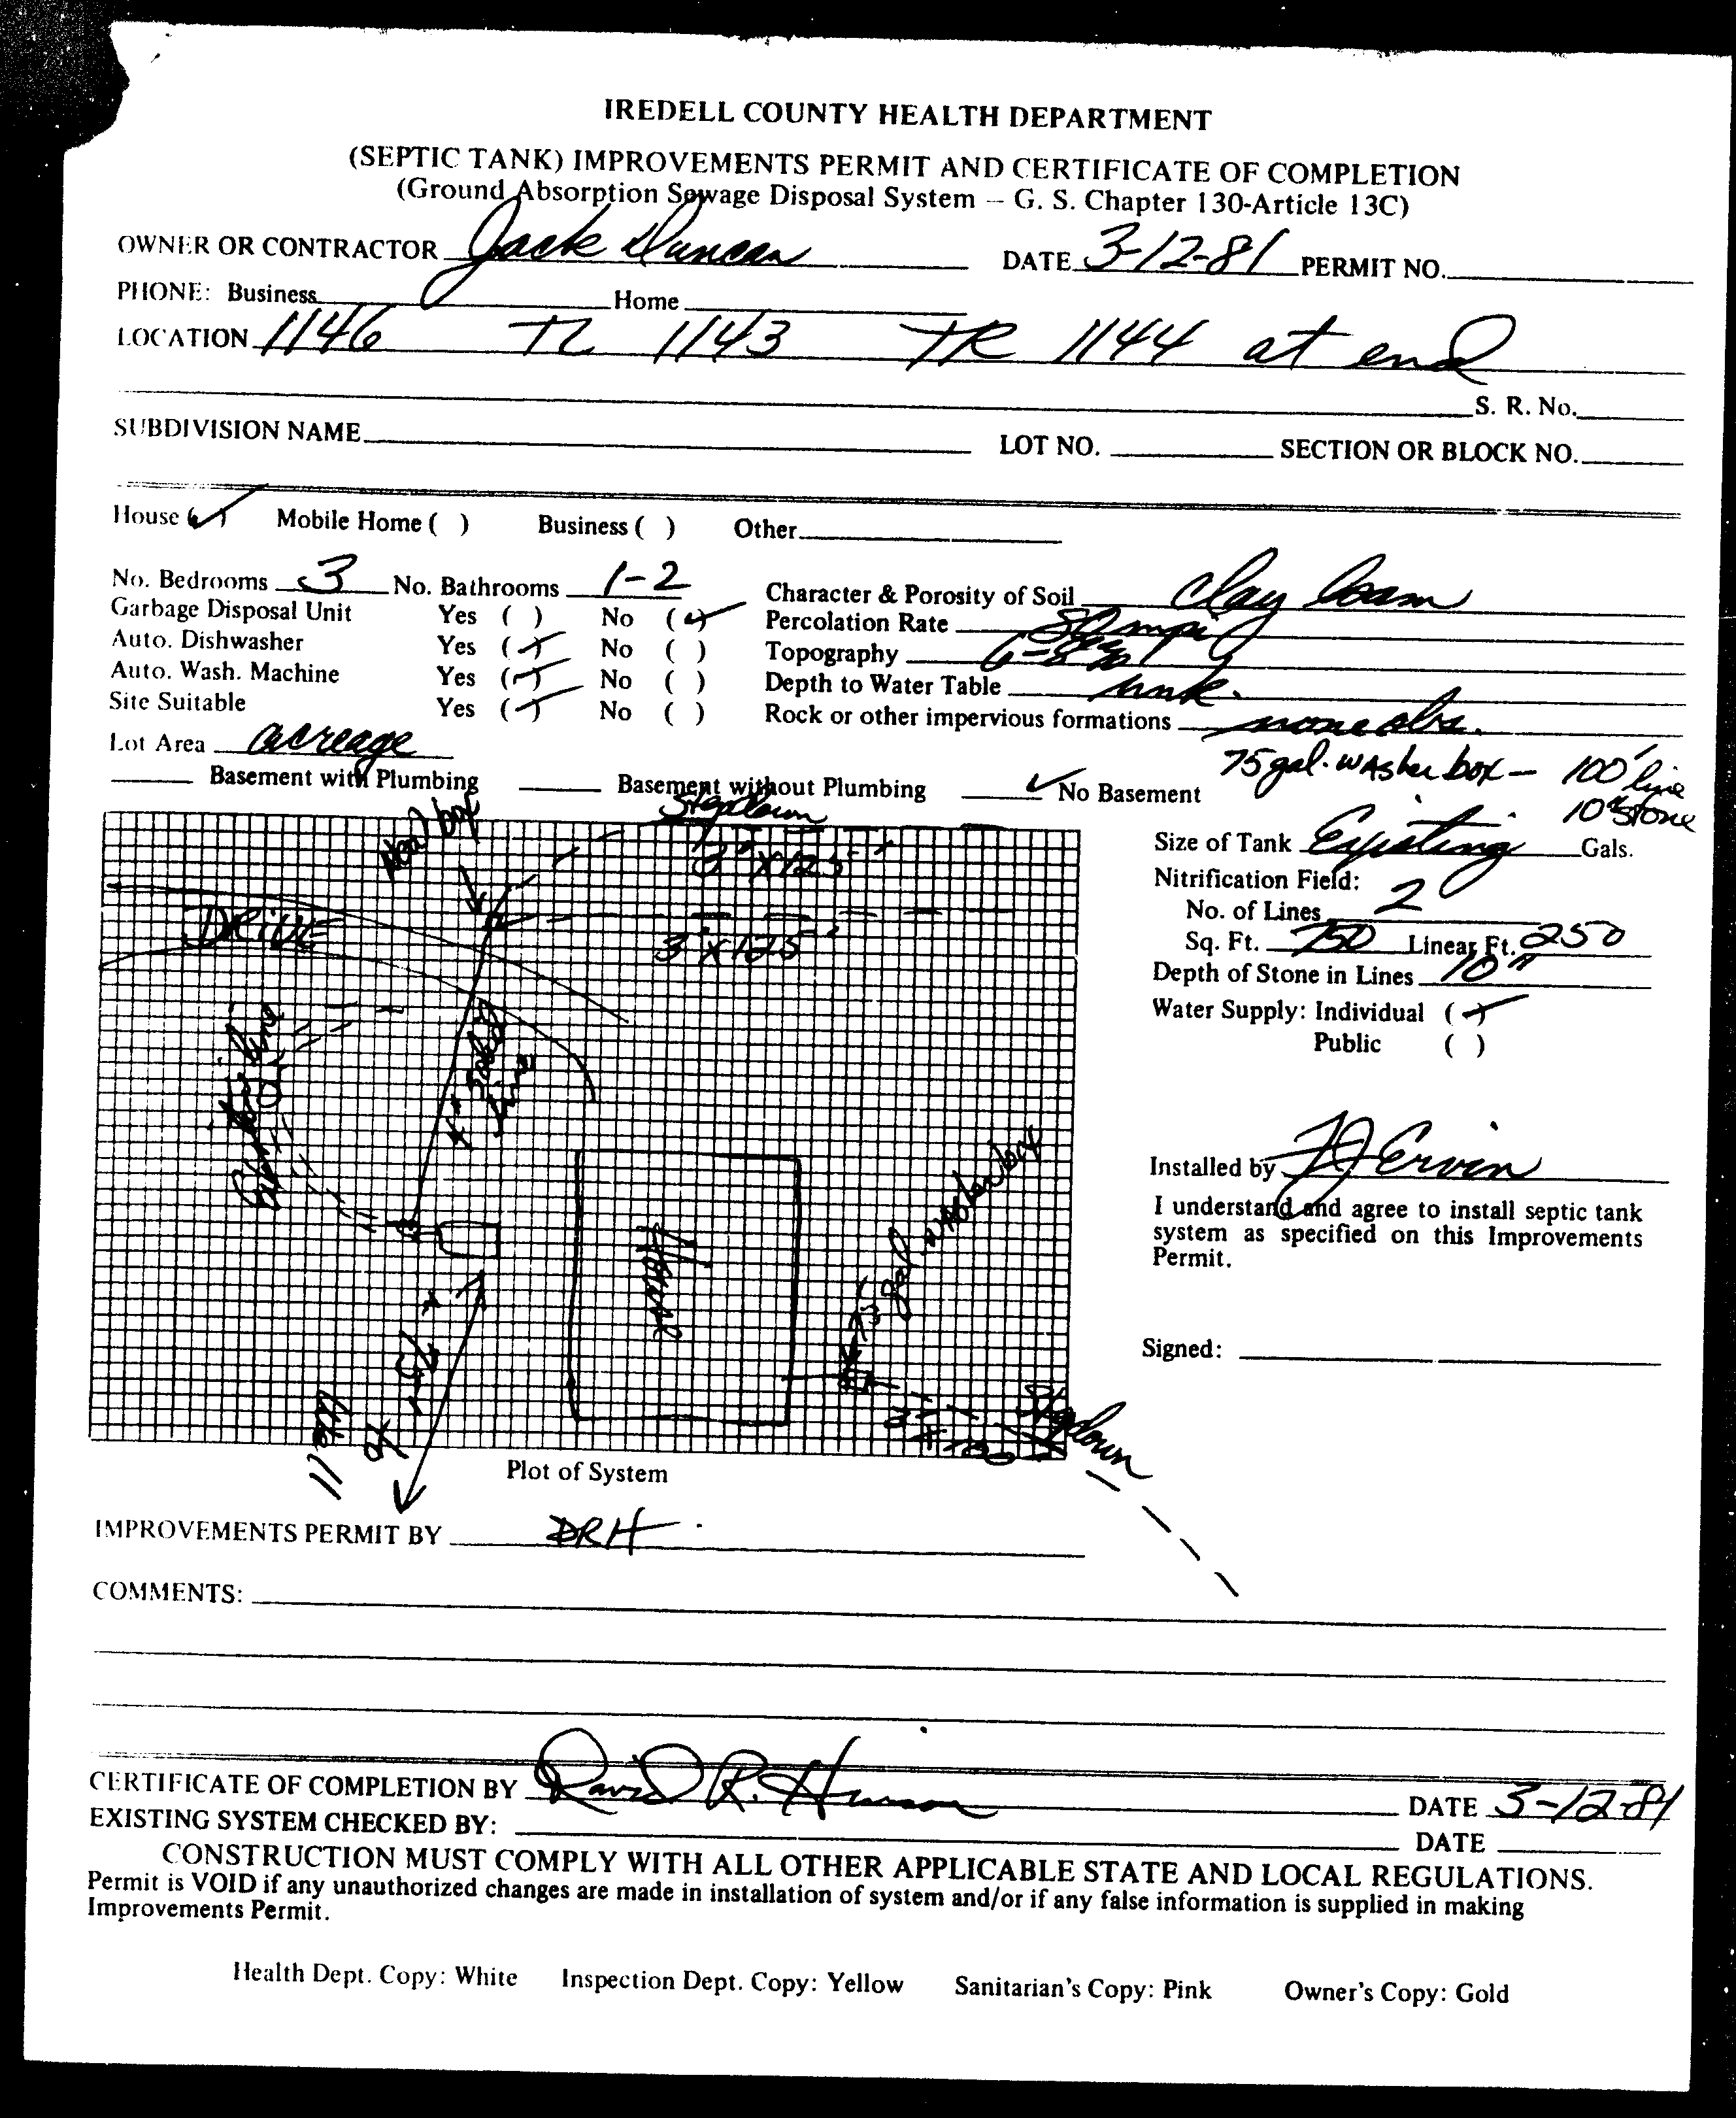 IREDELL COUNTY HEALTH DEPARTMENT
(SEPTIC TANK) IMPROVEMENTS PERMIT AND CERTIFICATE OF COMPLETION
(Ground Absorption Sewage Disposal System – G. S. Chapter 130-Article 13C)
OWNER OR CONTRACTOR Jack Duncan DATE 3-12-81 PERMIT NO.
PHONE: Business Home
LOCATION 1146 TL 1143 TR 1144 at end
S. R. No.
SUBDIVISION NAME LOT NO. SECTION OR BLOCK NO.
House (✓) Mobile Home ( ) Business ( ) Other
No. Bedrooms 3 No. Bathrooms 1-2 Character & Porosity of Soil clay loam
Garbage Disposal Unit Yes ( ) No (✓) Percolation Rate mpi
Auto. Dishwasher Yes (✓) No ( ) Topography 6-8%
Auto. Wash. Machine Yes (✓) No ( ) Depth to Water Table unk.
Site Suitable Yes (✓) No ( ) Rock or other impervious formations none obs.
Lot Area acreage
75 gal. washer box – 100' line
10" stone
Basement with Plumbing Basement without Plumbing ✓ No Basement
Stepdown
Head box
3' x 125'
Drive
3' x 125'
Existing line
4" solid line
House
75 gal. washer box
Stepdown
Plot of System
Size of Tank Existing Gals.
Nitrification Field:
No. of Lines 2
Sq. Ft. 750 Linear Ft. 250
Depth of Stone in Lines 10"
Water Supply: Individual (✓)
Public ( )
Installed by Ervin
I understand and agree to install septic tank
system as specified on this Improvements
Permit.
Signed:
IMPROVEMENTS PERMIT BY DRH
COMMENTS:
CERTIFICATE OF COMPLETION BY David R. DATE 3-12-81
EXISTING SYSTEM CHECKED BY: DATE
CONSTRUCTION MUST COMPLY WITH ALL OTHER APPLICABLE STATE AND LOCAL REGULATIONS.
Permit is VOID if any unauthorized changes are made in installation of system and/or if any false information is supplied in making
Improvements Permit.
Health Dept. Copy: White Inspection Dept. Copy: Yellow Sanitarian's Copy: Pink Owner's Copy: Gold